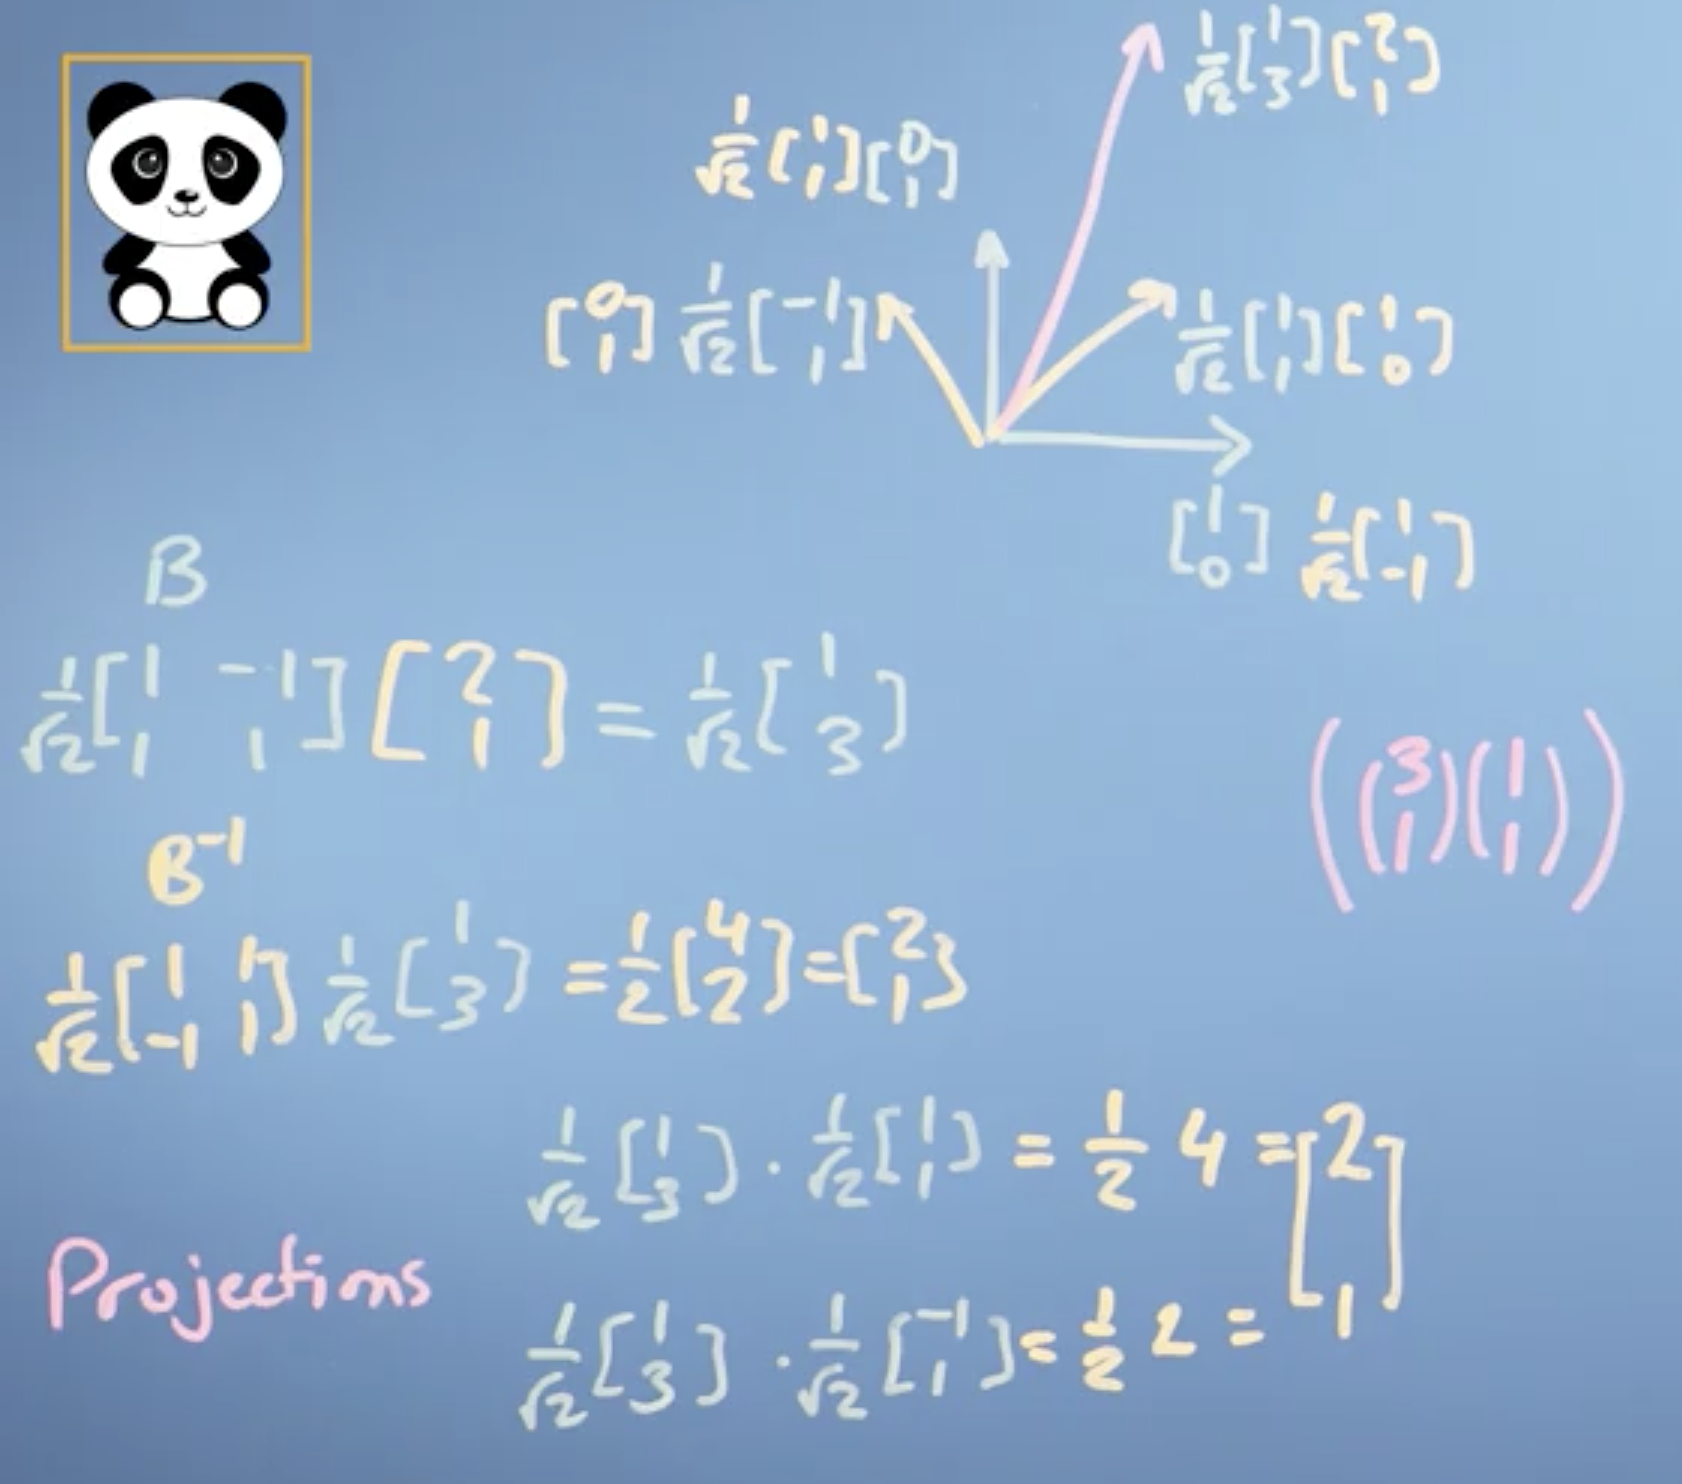 1/√2 [1 3] [2 1]
1/√2 [1 1] [0 1]
[0 1] 1/√2 [-1 1]
1/√2 [1 1] [1 0]
[1 0] 1/√2 [1 -1]
B
1/√2 [1 -1; 1 1] [2 1] = 1/√2 [1 3]
((3 1) (1 1))
B⁻¹
1/√2 [1 1; -1 1] 1/√2 [1 3] = 1/2 [4 2] = [2 1]
1/√2 [1 3] · 1/√2 [1 1] = 1/2 4 = [2
Projections
1/√2 [1 3] · 1/√2 [-1 1] = 1/2 2 = 1]